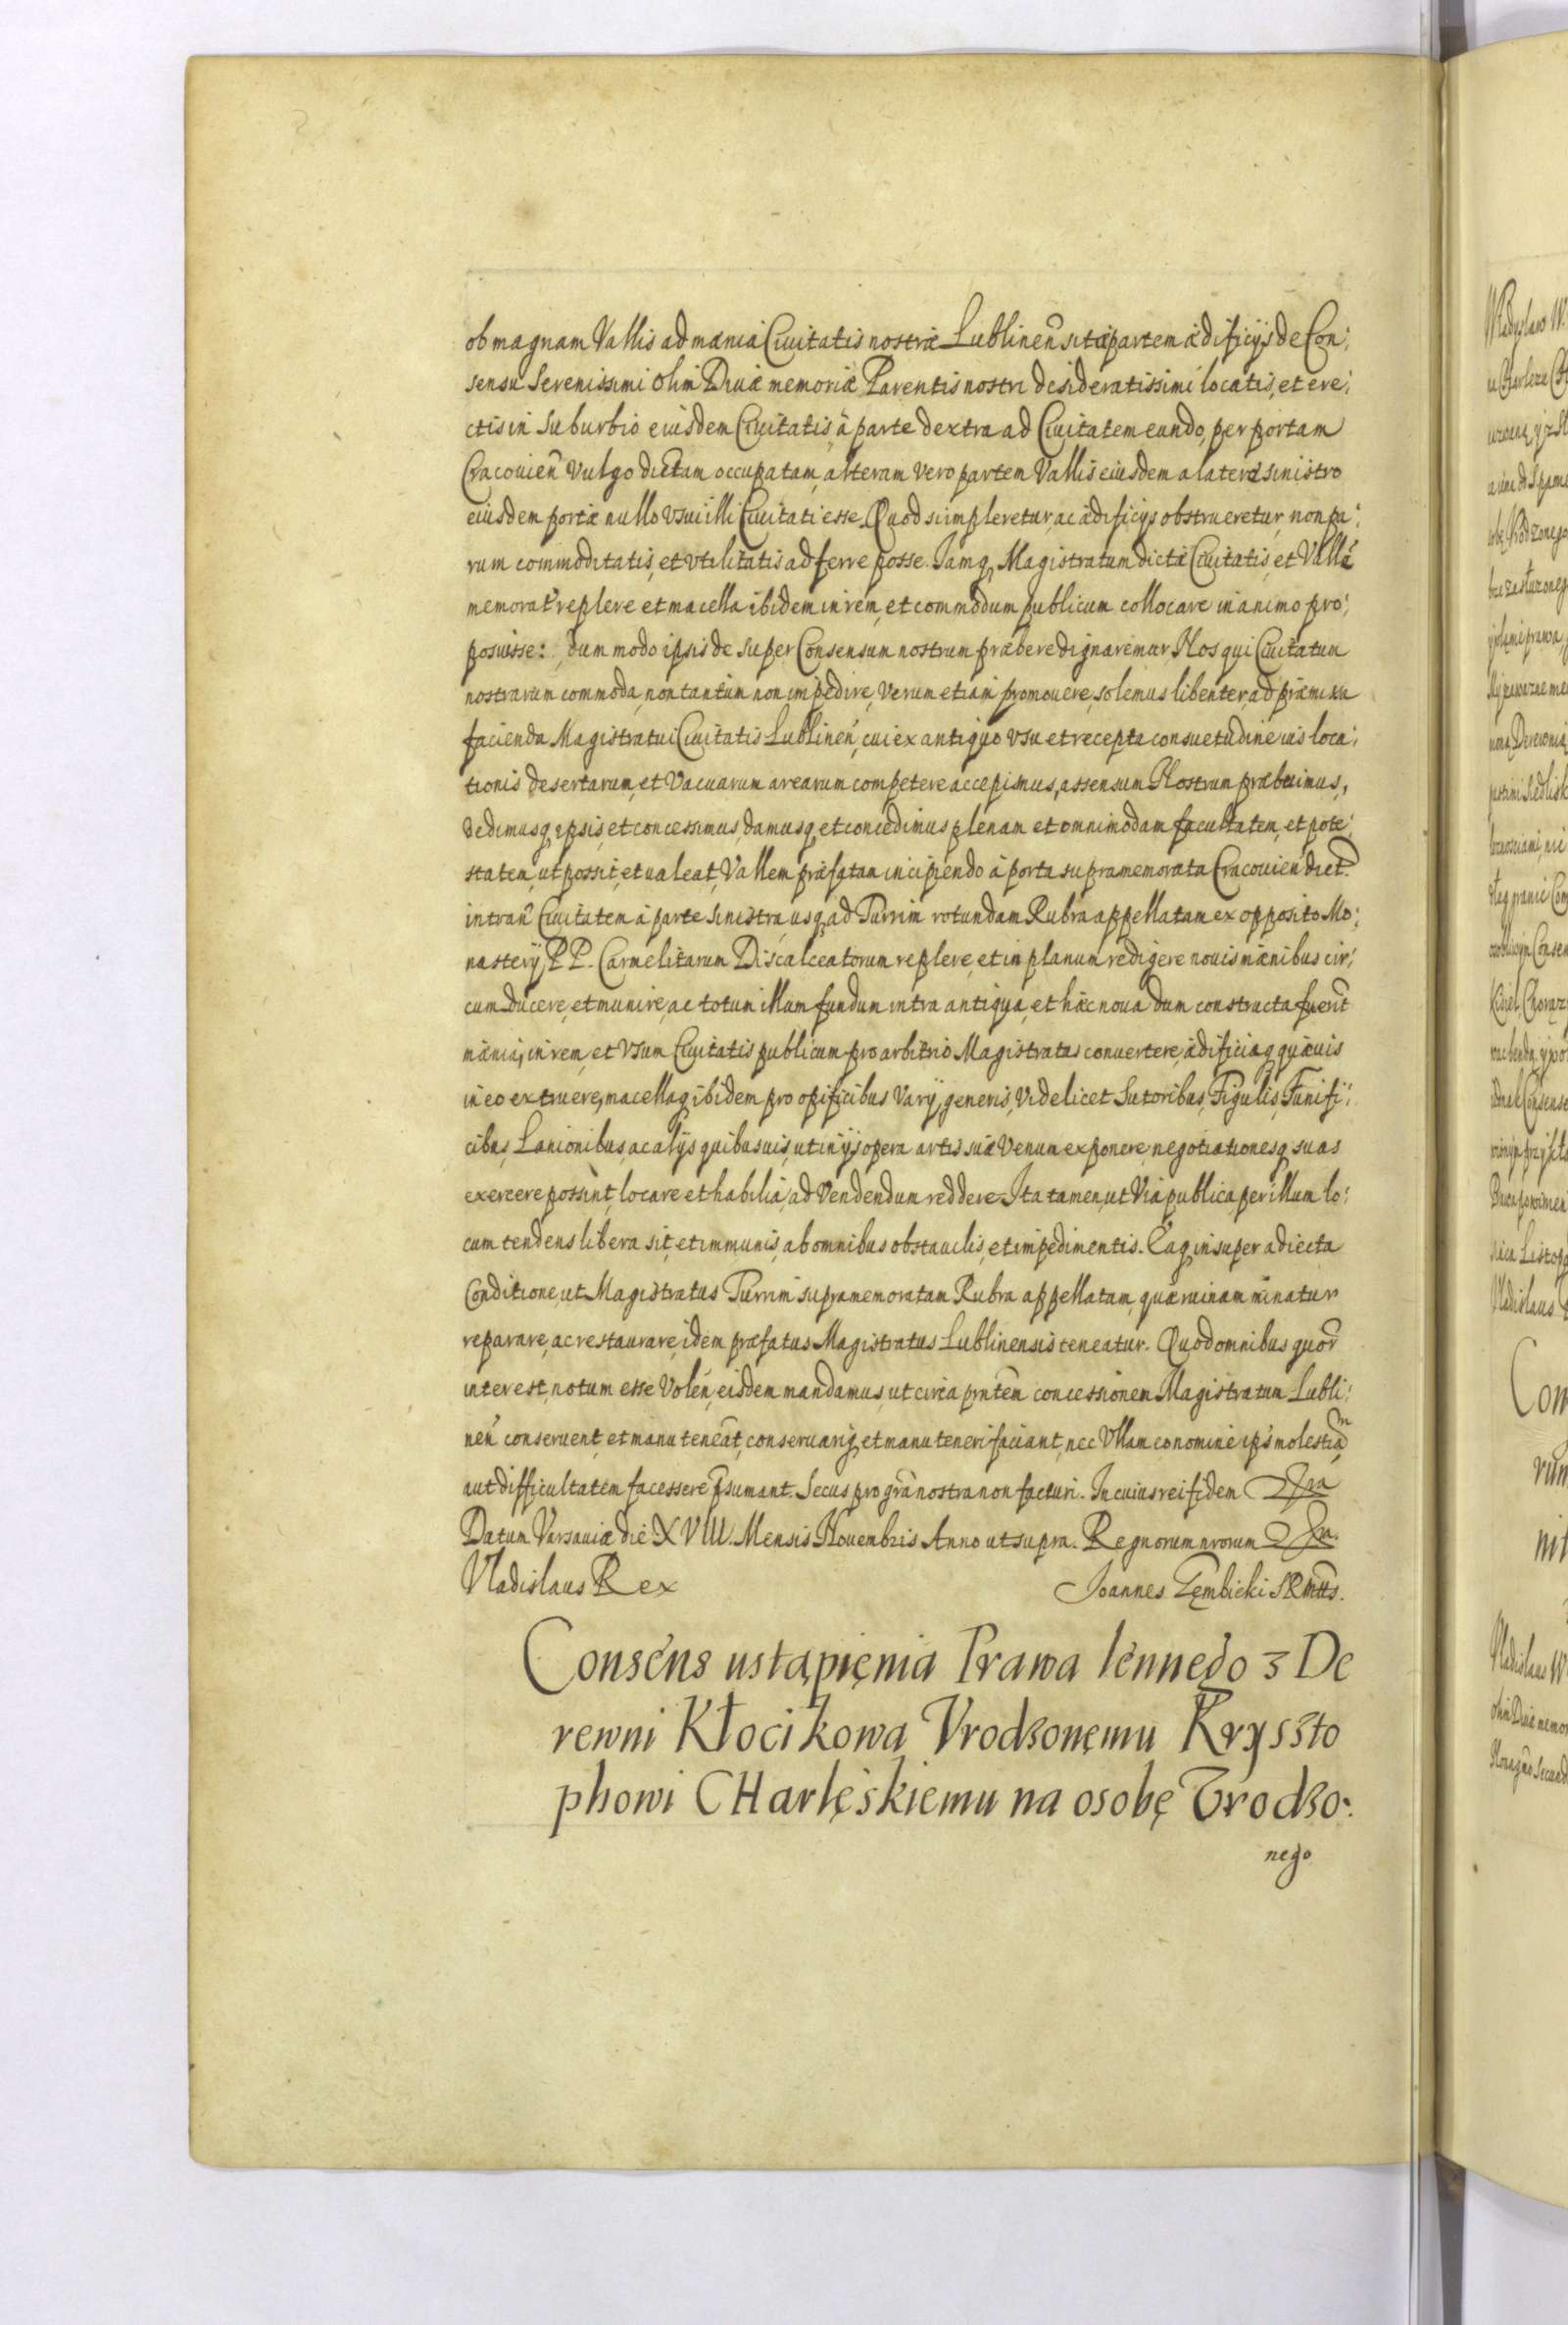 ob magnam Vallis ad mænia Ciuitatis nostræ Lublineñ sitæ partem ædificijs de Con:
sensu Serenissimi olim Diuæ memoriæ Parentis nostri desideratissimi locatis, et ere:
ctis in Suburbio eiusdem Ciuitatis, à parte dextra ad Ciuitatem eundo, per portam
Cracouieñ Vulgo dictam occupatam, alteram vero partem Vallis eiusdem a latere sinistro
eiusdem portæ nullo Vsui illi Ciuitati esse. Quod si impleretur, ac ædificijs obstrueretur, non pa:
rum commoditatis, et vtilitatis adferre posse. Jamq Magistratum dictæ Ciuitatis, et Vallē
memorat replere et macella ibidem in rem, et commodum publicum collocare in animo pro:
posuisse: dum modo ipsis de super Consensum nostrum præbere dignaremur Nos qui Ciuitatum
nostrarum commoda, non tantum non impedire, verum etiam promouere, solemus libenter, ad præmissa
facienda Magistratui Ciuitatis Lublineñ, cui ex antiquo vsu et recepta consuetudine ius loca:
tionis desertarum, et Vacuarum arearum competere accepimus, assensum Nostrum præbuimus,
dedimusq ipsis, et concessimus, damusq et concedimus plenam et omnimodam facultatem, et pote:
statem, ut possit, et ualeat, Vallem præfatam incipiendo à porta supramemorata Cracouieñ dict
intrañ Ciuitatem à parte sinistra, usq ad Turrim rotundam Rubra appellatam ex opposito Mo:
nasterij PP. Carmelitarum Discalceatorum replere, et in planum redigere nouis mænibus cir:
cumducere, et munire, ac totum illum fundum intra antiqua, et hæc noua dum constructa fuerīt
mænia, in rem, et Vsum Ciuitatis publicum pro arbitrio Magistratus conuertere, ædificiaq quæuis
in eo extruere, macellaq ibidem pro opificibus Varij generis, Videlicet Sutoribus, Figulis, Funifi:
cibus, Lanionibus, ac alijs quibusuis, ut in ijs opera artis suæ Venum exponere, negotiationesq suas
exercere possint, locare et habilia, ad Vendendum reddere. Ita tamen, ut Via publica per illum lo:
cum tendens libera sit, et immunis, ab omnibus obstaculis, et impedimentis. Eaq insuper adiecta
Conditione, ut Magistratus Turrim supramemoratam Rubra appellatam, quæ ruinam minatur
reparare, ac restaurare, idem præfatus Magistratus Lublinensis teneatur. Quod omnibus quor̃
interest, notum esse Voleñ, eisdem mandamus, ut circa pñtem concessionem Magistratum Lubli:
neñ conseruent, et manu teneāt, conseruariq, et manu teneri faciant, nec Vllam eo nomine ipsi molestiam
aut difficultatem facessere p̃sumant. Secus pro grã nostra non facturi. In cuius rei fidem &ra
Datum Varsauiæ die XVIII. Mensis Nouembris Anno ut supra. Regnorum nrorum &ra.
Vladislaus Rex Joannes Gembicki SRMtts.
Consens ustąpienia Prawa lennego z De
rewni Kłocikowa Vrodzonemu Krysszto
phowi CHarlęskiemu na osobę Vrodzo:
nego